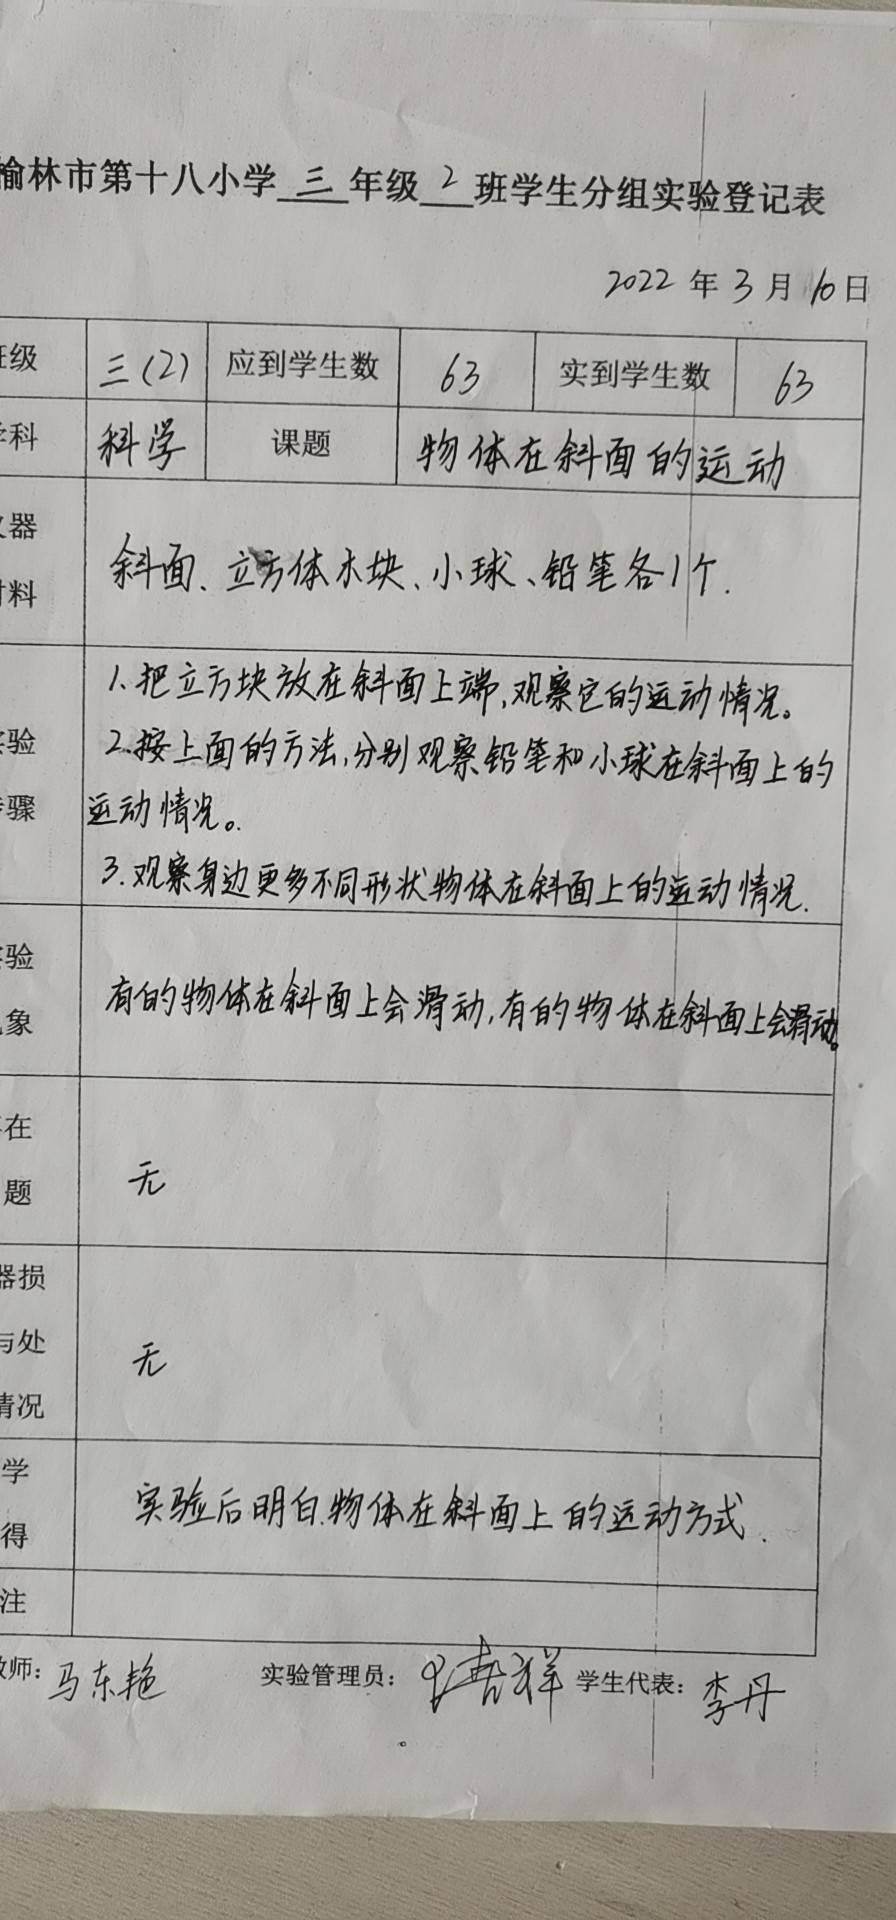 榆林市第十八小学三年级2班学生分组实验登记表
2022年3月10日
班级 三(2) 应到学生数 63 实到学生数 63
学科 科学 课题 物体在斜面的运动
仪器
材料
斜面、立方体木块、小球、铅笔各1个.
实验
步骤
1.把立方块放在斜面上端,观察它的运动情况。
2.按上面的方法,分别观察铅笔和小球在斜面上的
运动情况。
3.观察身边更多不同形状物体在斜面上的运动情况.
实验
现象
有的物体在斜面上会滑动,有的物体在斜面上会滑动。
存在
问题
无
器损
与处
情况
无
学
得
实验后明白物体在斜面上的运动方式.
注
教师:马东艳 实验管理员: 学生代表:李丹